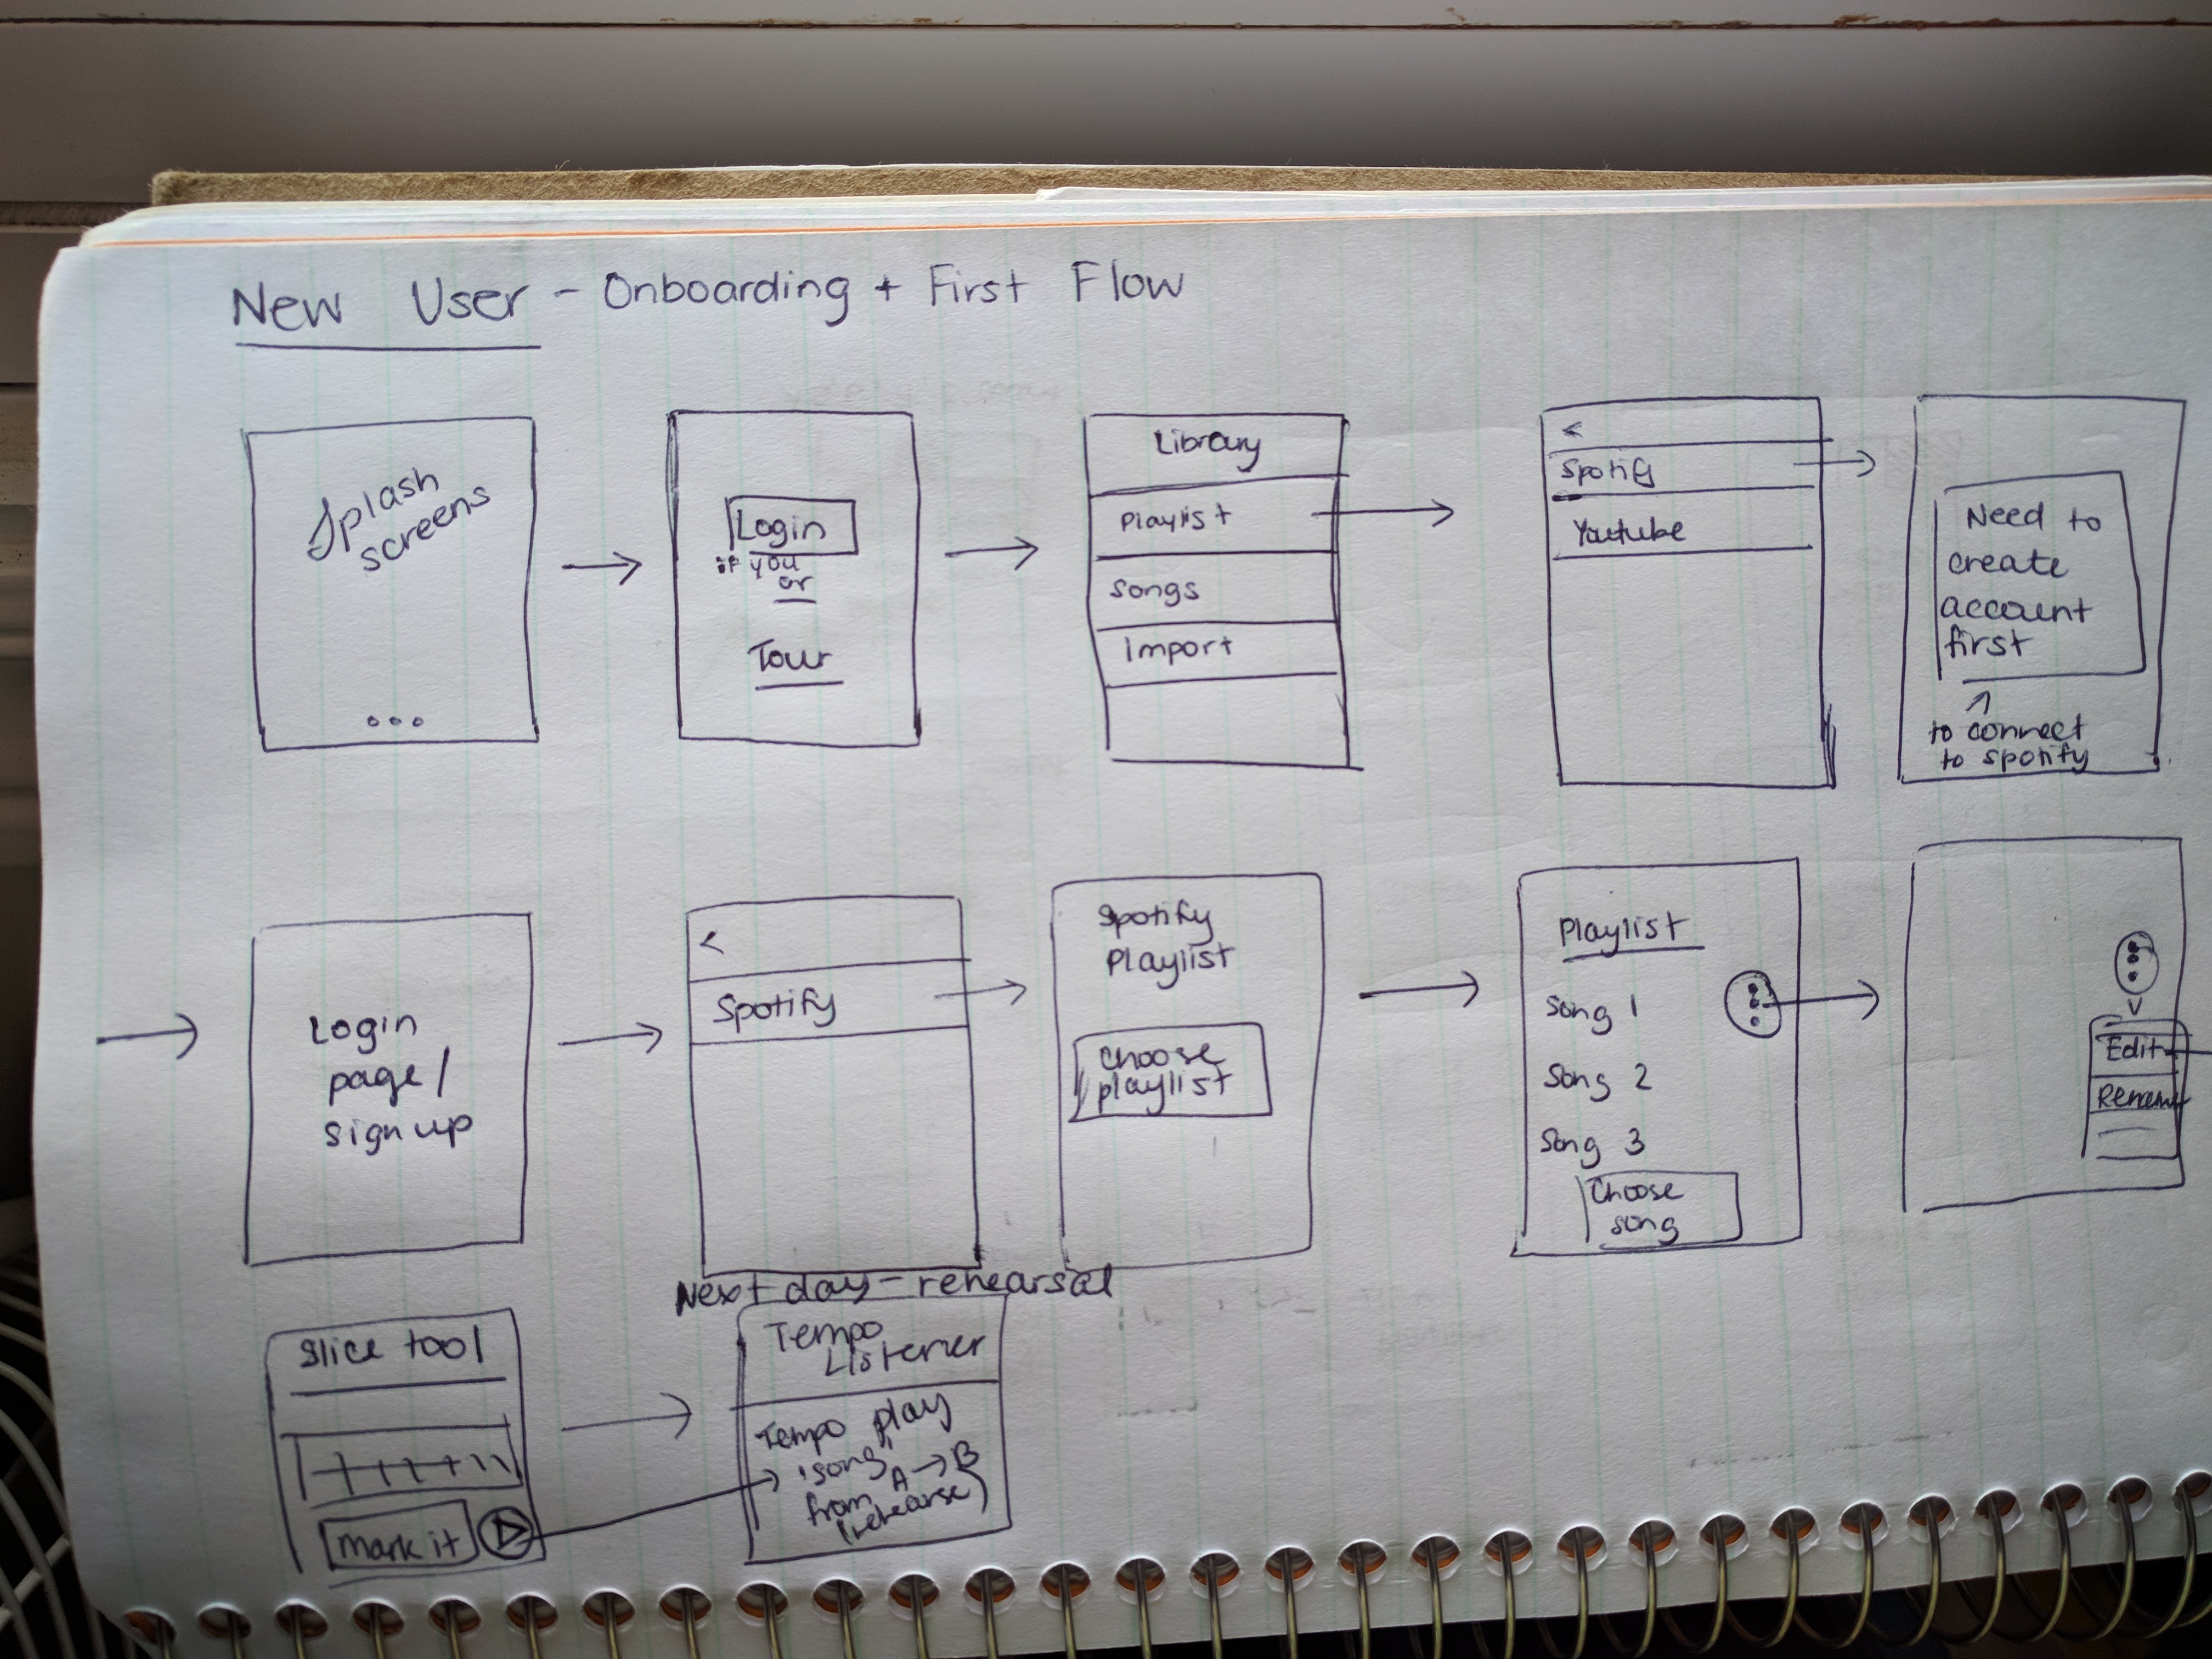 New User - Onboarding + First Flow
Splash
screens
Login
if you
or
Tour
Library
Playlist
Songs
Import
<
Spotify
Youtube
Need to
create
account
first
to connect
to spotify
Login
page/
sign up
<
Spotify
Spotify
Playlist
Choose
playlist
Playlist
Song 1
Song 2
Song 3
Choose
song
Edit
Rename
Slice tool
Mark it
Next day - rehearsal
Tempo
Listener
Tempo play
song
from A → B
(rehearse)